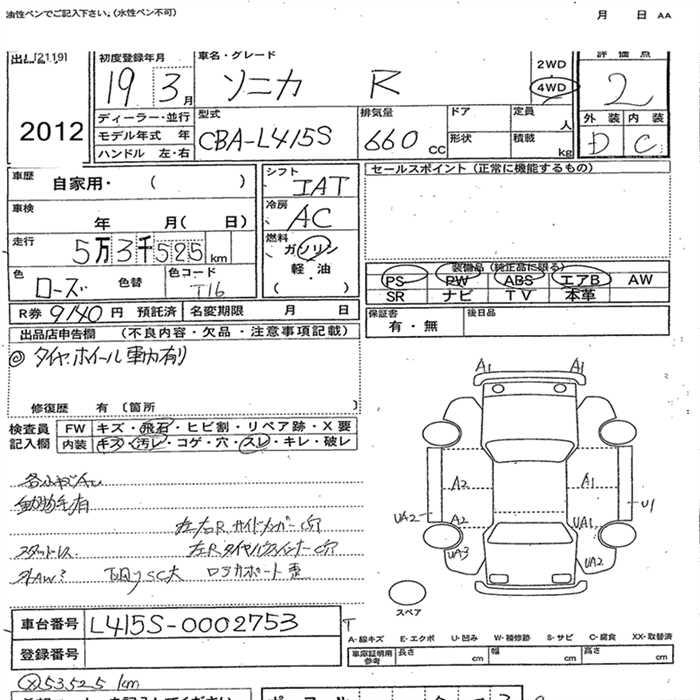 油性ペンでご記入下さい。(水性ペン不可) 月 日 AA
初度登録年月 車名・グレード 評価点
19 3月 ソニカ R 2WD 4WD 2
2012
ディーラー・並行 型式 排気量 ドア 定員 人 外装 内装
モデル年式 年 CBA-L415S 660 CC 形状 積載 kg D C
ハンドル 左・右
車歴 自家用・( ) シフト IAT セールスポイント(正常に機能するもの)
車検 年 月( 日) 冷房 AC
走行 5万3千525km 燃料 ガソリン
軽・油
( )
色 ローズ 色替 色コード T16
装備品(純正品に限る)
PS PW ABS エアB AW
SR ナビ TV 本革
R券 9140円 預託済 名変期限 月 日
保証書 有・無 後日品
出品店申告欄 (不良内容・欠品・注意事項記載)
◎タイヤ.ホイール車内有り
修復歴 有〔箇所
検査員 記入欄
FW キズ・飛石・ヒビ割・リペア跡・X要
内装 キズ・汚レ・コゲ・穴・スレ・キレ・破レ
A1 A1
A2 A1
UA2 A2 UA1 U1
UA3 UA2
スペア
スタッドレス
車台番号 L415S-0002753
登録番号
A-線キズ E-エクボ U-凹み W-補修跡 S-サビ C-腐食 XX-取替済
車庫証明用参考 長さ cm 幅 cm 高さ cm
53525km